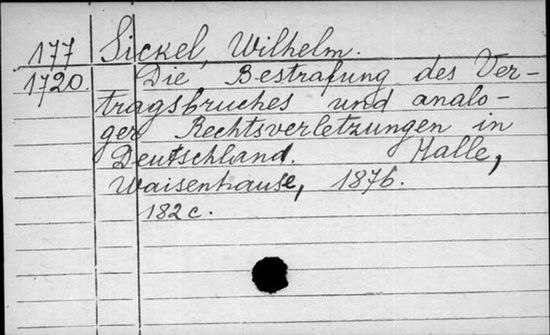 177 Sickel, Wilhelm.
1720. Die Bestrafung des Ver-
tragsbruches und analo-
ger Rechtsverletzungen in
Deutschland. Halle,
Waisenhause, 1876.
182 c.